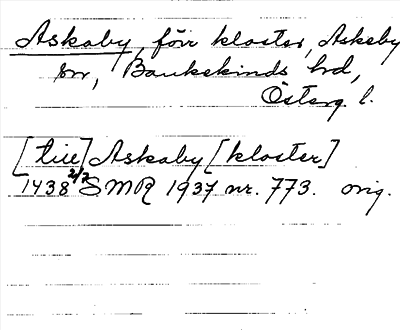 Askaby, förr kloster, Askeby
sn, Bankekinds hd,
Österg. l.
[till] Askaby [kloster]
1438 2/2 SMR 1937 nr. 773. orig.